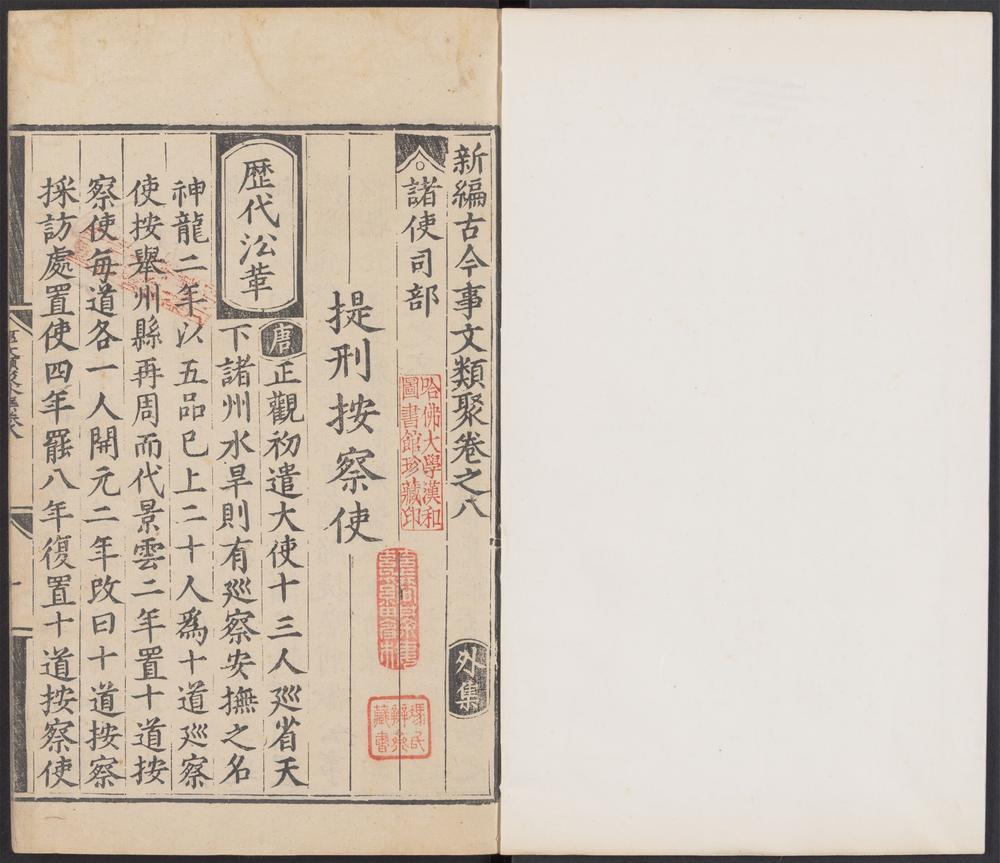 新編古今事文類聚卷之八
外集
諸使司部
哈佛大學漢和
圖書館珍藏印
馮氏
辨齋
藏書
提刑按察使
歷代㳂革
唐
正觀初遣大使十三人廵省天
下諸州水旱則有廵察安撫之名
神龍二年以五品已上二十人爲十道廵察
使按舉州縣再周而代景雲二年置十道按
察使每道各一人開元二年改曰十道按察
採訪處置使四年罷八年復置十道按察使